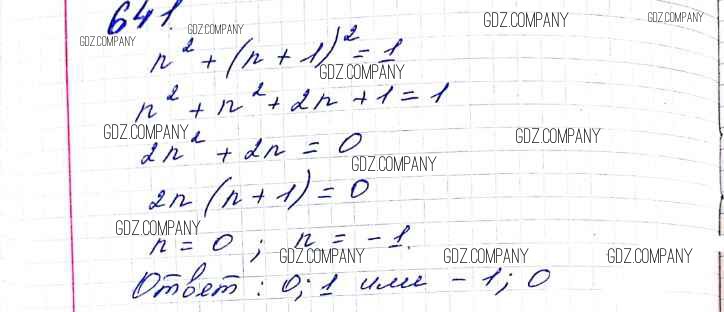 641.
GDZ.COMPANY GDZ.COMPANY GDZ.COMPANY GDZ.COMPANY
n² + (n + 1)² = 1
GDZ.COMPANY
n² + n² + 2n + 1 = 1
GDZ.COMPANY GDZ.COMPANY
2n² + 2n = 0
GDZ.COMPANY
2n (n + 1) = 0
GDZ.COMPANY
n = 0 ; n = -1.
GDZ.COMPANY GDZ.COMPANY GDZ.COMPANY
Ответ : 0; 1 или -1; 0